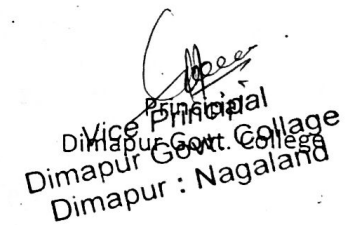 Principal
Dimapur Govt. College
Vice Principal
Dimapur Govt. Collage
Dimapur : Nagaland